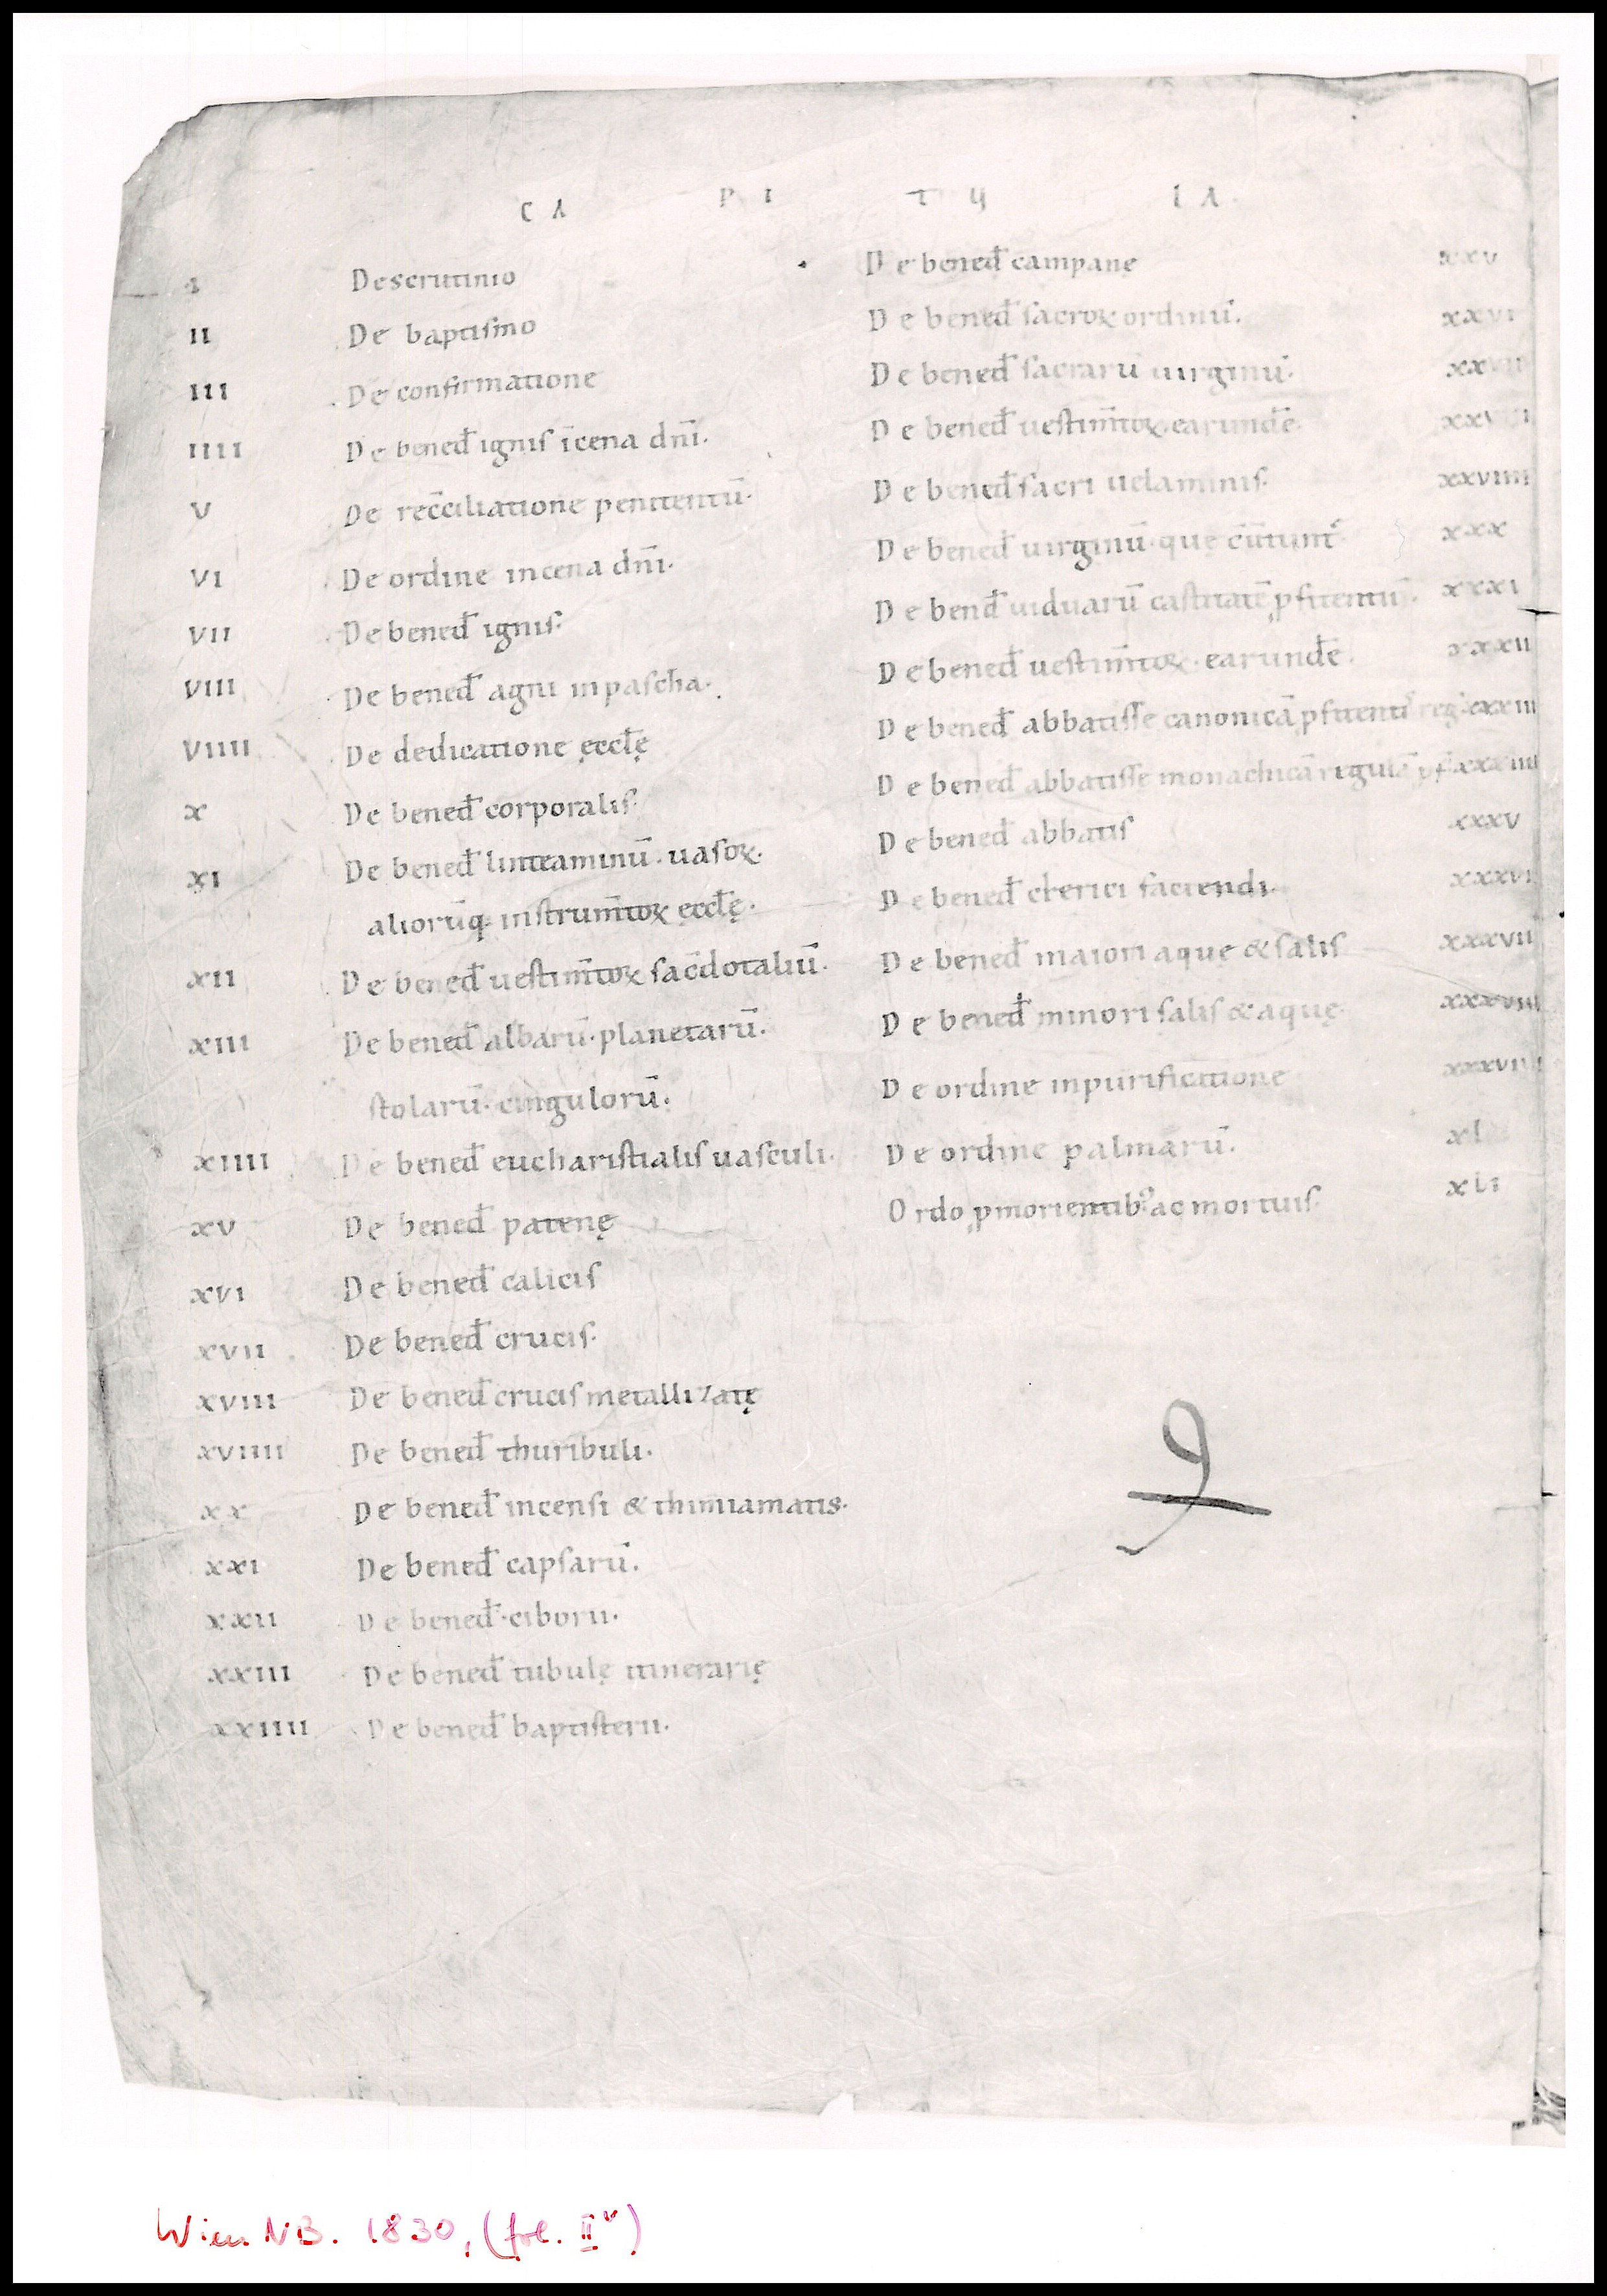 CA PI TU LA.
I De scrutinio
II De baptismo
III De confirmatione
IIII De bened̄ ignis īcena dn̄i.
V De rec̄ciliatione penitentū.
VI De ordine incena dn̄i.
VII De bened̄ ignis.
VIII De bened̄ agni inpascha.
VIIII De dedicatione ęccl̄ę
X De bened̄ corporalis.
XI De bened̄ linteaminū. uasoꝝ.
aliorūq; instrum̄toꝝ ęccl̄ę.
XII De bened̄ uestim̄toꝝ sac̄dotaliū.
XIII De bened̄ albarū. planetarū.
stolarū. cingulorū.
XIIII De bened̄ eucharistialis uasculi.
XV De bened̄ patenę
XVI De bened̄ calicis
XVII De bened̄ crucis.
XVIII De bened̄ crucis metallizatę
XVIIII De bened̄ thuribuli.
XX De bened̄ incensi & thimiamatis.
XXI De bened̄ capsarū.
XXII De bened̄. ciborii.
XXIII De bened̄ tubulę itinerarię
XXIIII De bened̄ baptisterii.
De bened̄ campanę XXV
De bened̄ sacroꝝ ordinū. XXVI
De bened̄ sacrarū uirginū. XXVII
De bened̄ uestim̄toꝝ earundē. XXVIII
De bened̄ sacri uelaminis. XXVIIII
De bened̄ uirginū. quę c̄ūtunt᷑. XXX
De bend̄ uiduarū castitatē ꝓfitentiū. XXXI
De bened̄ uestim̄toꝝ. earundē. XXXII
De bened̄ abbatisse canonicā ꝓfitenti᷒ reḡ. XXXIII
De bened̄ abbatisse monachicā regulā ꝓf XXXIIII
De bened̄ abbatis XXXV
De bened̄ clerici faciendi. XXXVI
De bened̄ maiori aquę & salis XXXVII
De bened̄ minori salis & aquę. XXXVIII
De ordine inpurificatione XXXVIIII
De ordine palmarū. XL
Ordo ꝓmorientib᷒ ac mortuis. XLI
9
Wien NB. 1830, (fol. IIv)